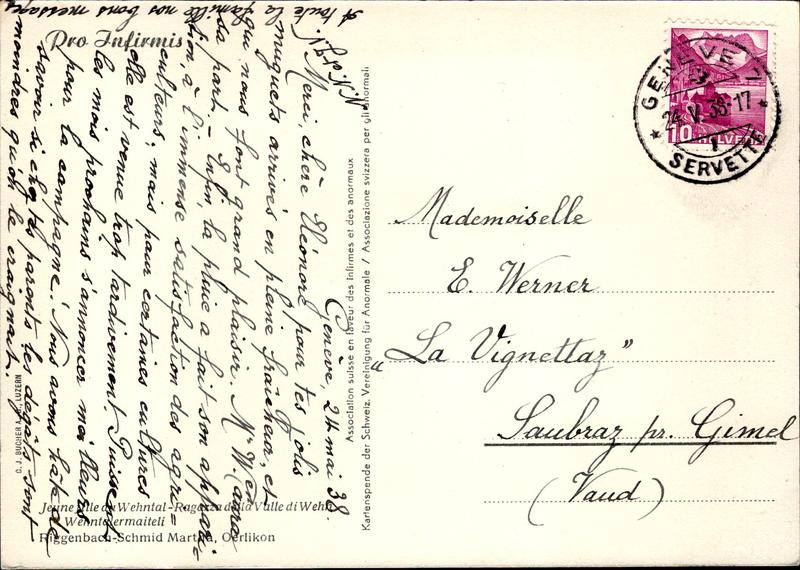 Pro Infirmis
Genève, 24 mai 38.
Merci, chère Eléonore pour tes jolis
muguets arrivés en pleine fraîcheur, et
qui nous font grand plaisir. Mr W. en aura
sa part. - Enfin la pluie a fait son appari-
tion à l'immense satisfaction des agri=
culteurs, mais pour certaines cultures
elle est venue trop tardivement. Puissent
les mois prochains s'annoncer meilleurs
pour la campagne! Nous avons hâte de
savoir si chez tes parents les dégâts sont
moindres qu'on le craignait.
A toute la
famille nos bons messages
Jeune fille du Wehntal - Ragazza della Valle di Wehn
Wehntalermaiteli
Riggenbach-Schmid Martha, Oerlikon
C. J. BUCHER A.G., LUZERN
Association suisse en faveur des Infirmes et des anormaux
Kartenspende der Schweiz. Vereinigung für Anormale / Associazione svizzera per gli anormali
GENÈVE 7
24.V.38-17
SERVETTE
10 HELVETIA
Mademoiselle
E. Werner
"La Vignettaz"
Saubraz pr. Gimel
(Vaud)